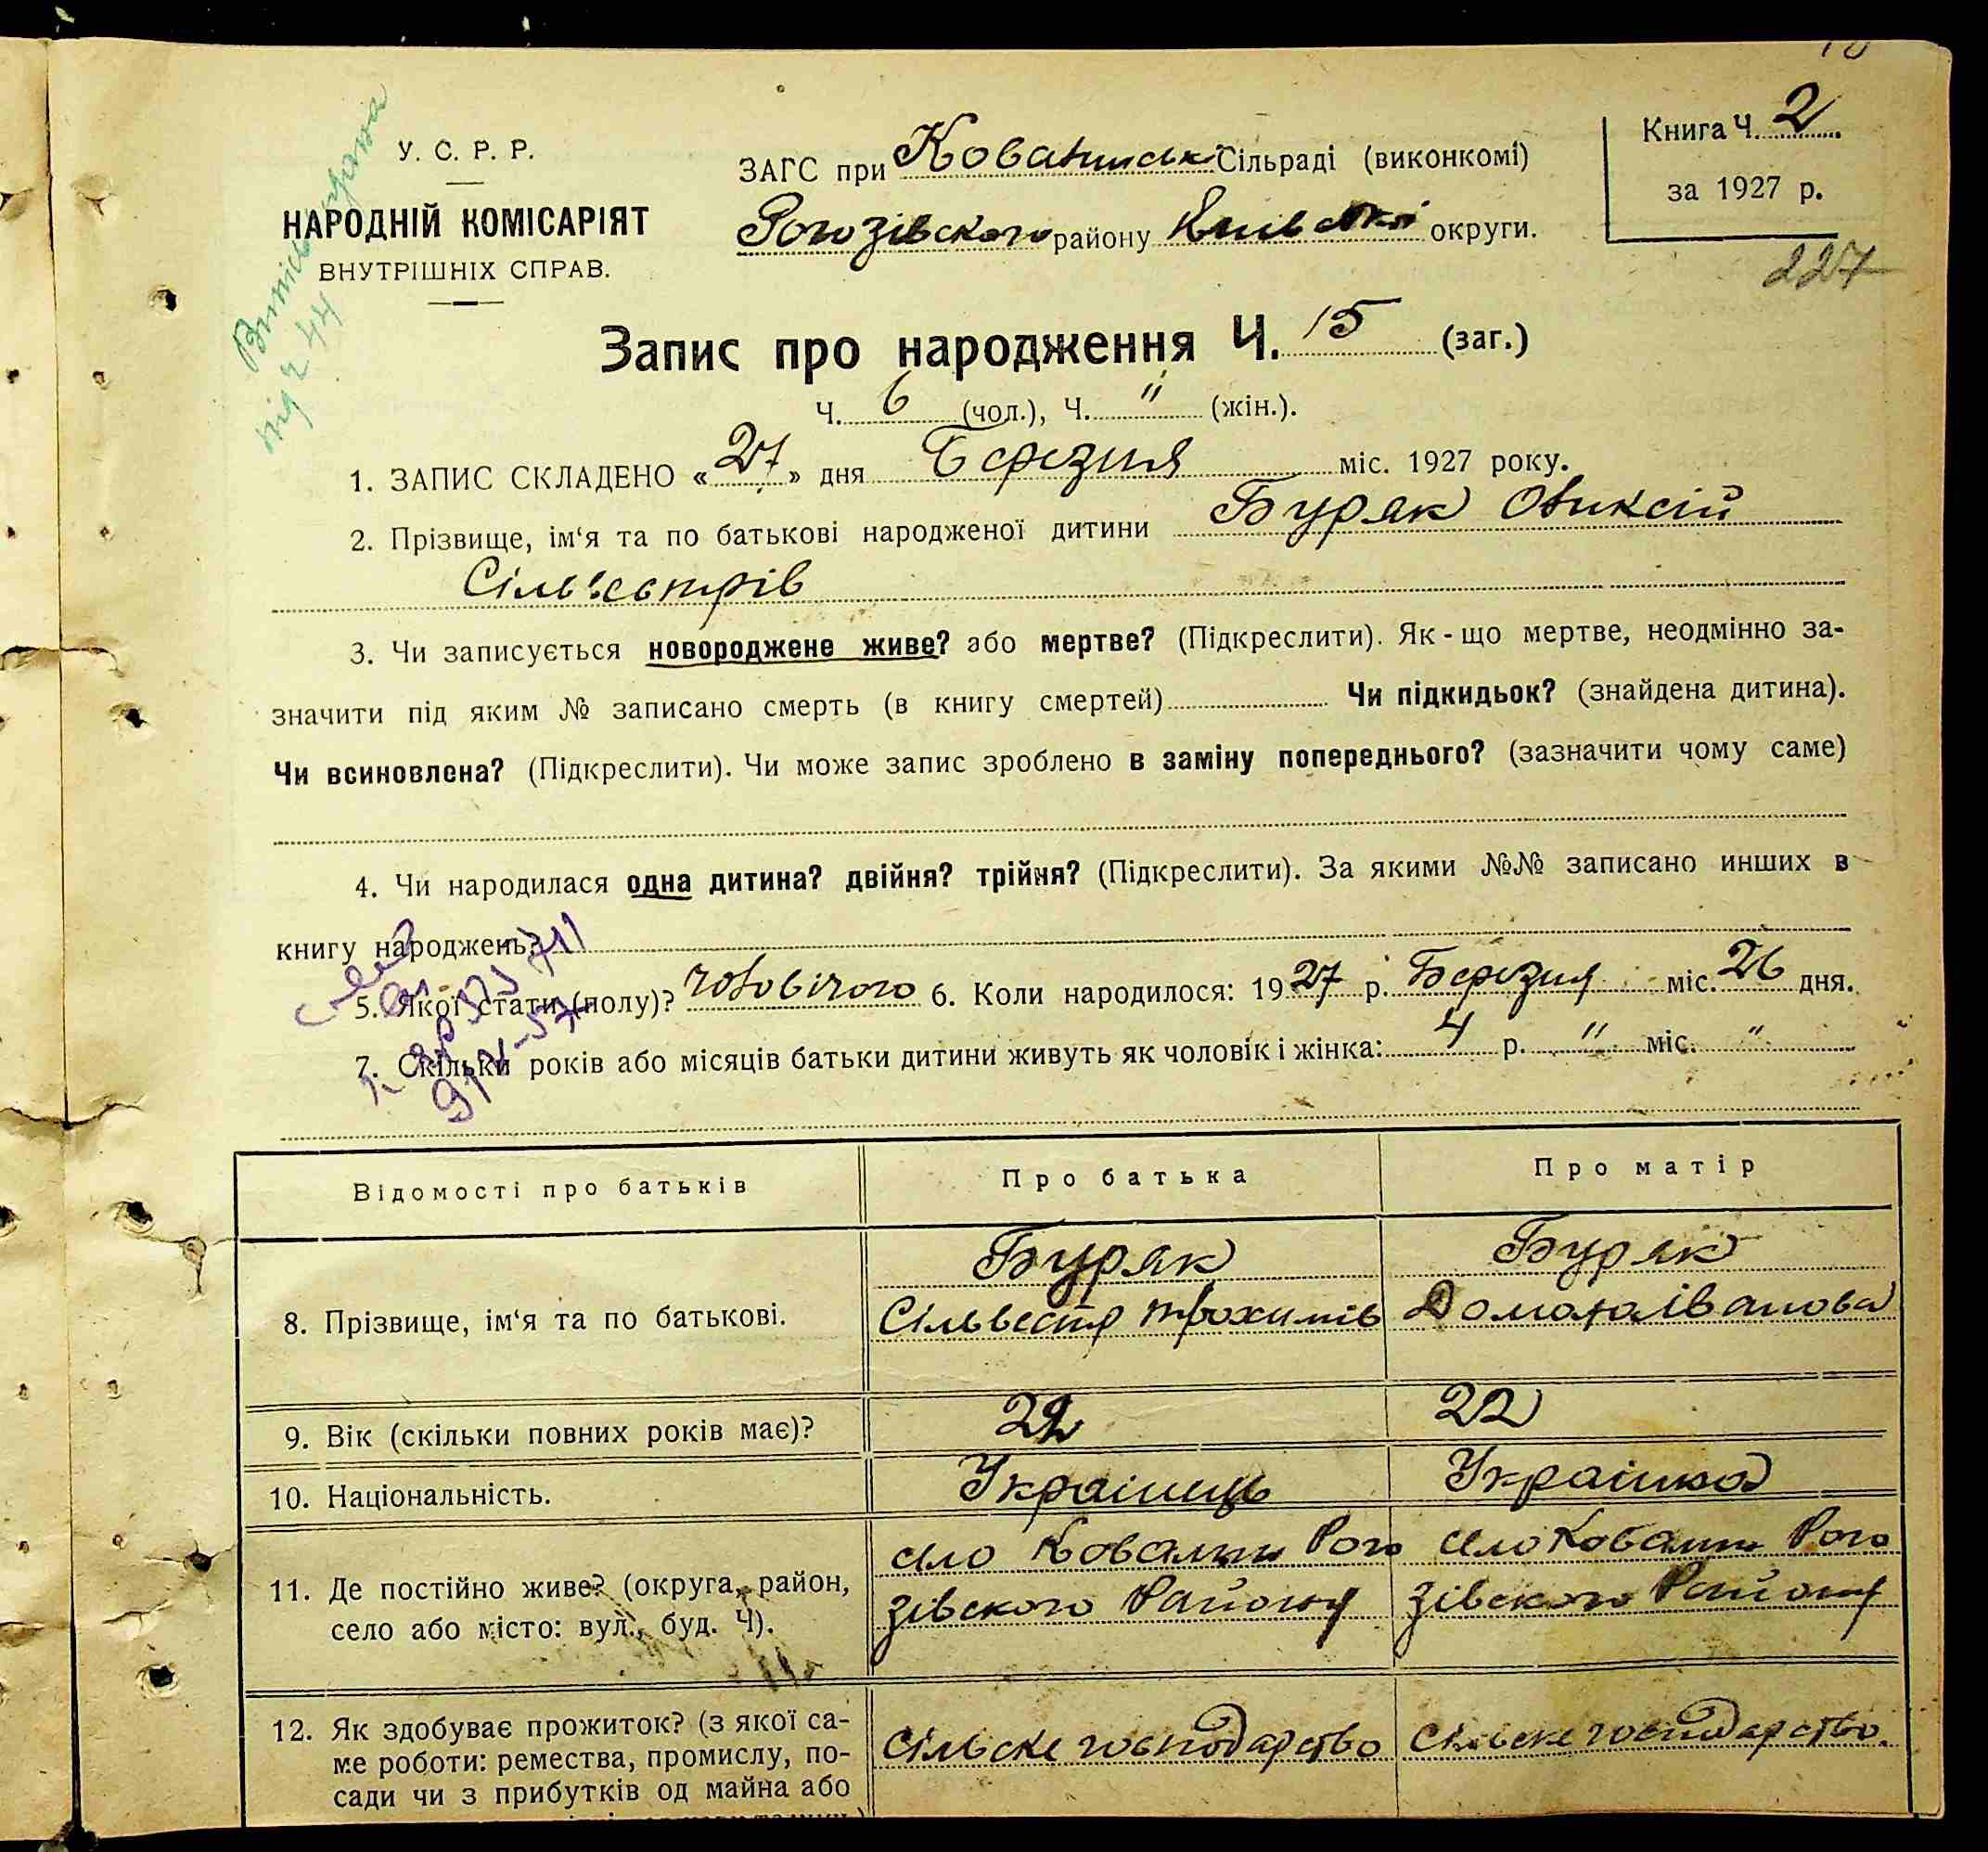 У. С. Р. Р.
НАРОДНІЙ КОМІСАРІЯТ
ВНУТРІШНІХ СПРАВ.
ЗАГС при Ковалинські Сільраді (виконкомі)
Рогозівского району Київської округи.
Книга Ч. 2
за 1927 р.
227
Запис про народження Ч. 15 (заг.)
Ч. 6 (чол.), Ч. " (жін.).
1. ЗАПИС СКЛАДЕНО «27» дня Березня міс. 1927 року.
2. Прізвище, ім‘я та по батькові народженої дитини Буряк Оликсій
Сільвестрів
3. Чи записується новороджене живе? або мертве? (Підкреслити). Як-що мертве, неодмінно за-
значити під яким № записано смерть (в книгу смертей) Чи підкидьок? (знайдена дитина).
Чи всиновлена? (Підкреслити). Чи може запис зроблено в заміну попереднього? (зазначити чому саме)
4. Чи народилася одна дитина? двійня? трійня? (Підкреслити). За якими №№ записано инших в
книгу народжень?
5. Якої стати (полу)? чоловічого 6. Коли народилося: 1927 р. Березня міс. 26 дня.
7. Скільки років або місяців батьки дитини живуть як чоловік і жінка: 4 р. " міс. "
Відомості про батьків Про батька Про матір
8. Прізвище, ім‘я та по батькові.
Буряк
Сільвестр Трохимів
Буряк
Домаха Іванова
9. Вік (скільки повних років має)? 22 22
10. Національність. Українець Українка
11. Де постійно живе? (округа, район,
село або місто: вул., буд. Ч).
село Ковалин Рого
зівского Району
село Ковалин Рого
зівского Району
12. Як здобуває прожиток? (з якої са-
ме роботи: ремества, промислу, по-
сади чи з прибутків од майна або
Сільске господарство
Сільске господарство.